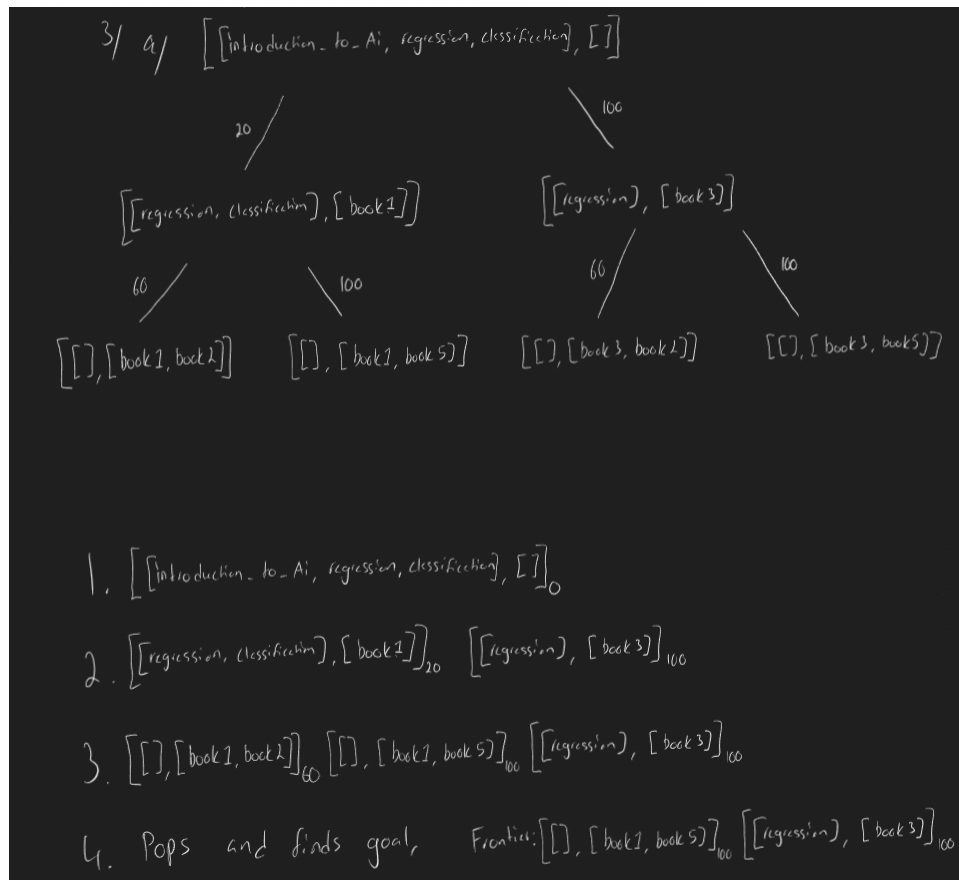 3/ a/ [[introduction_to_Ai, regression, classification], []]
20 100
[[regression, classification], [book1]] [[regression], [book3]]
60 100 60 100
[[], [book1, book2]] [[], [book1, book5]] [[], [book3, book2]] [[], [book3, book5]]
1. [[introduction_to_Ai, regression, classification], []]0
2. [[regression, classification], [book1]]20 [[regression], [book3]]100
3. [[], [book1, book2]]60 [[], [book1, book5]]100 [[regression], [book3]]100
4. Pops and finds goal, Frontier: [[], [book1, book5]]100 [[regression], [book3]]100